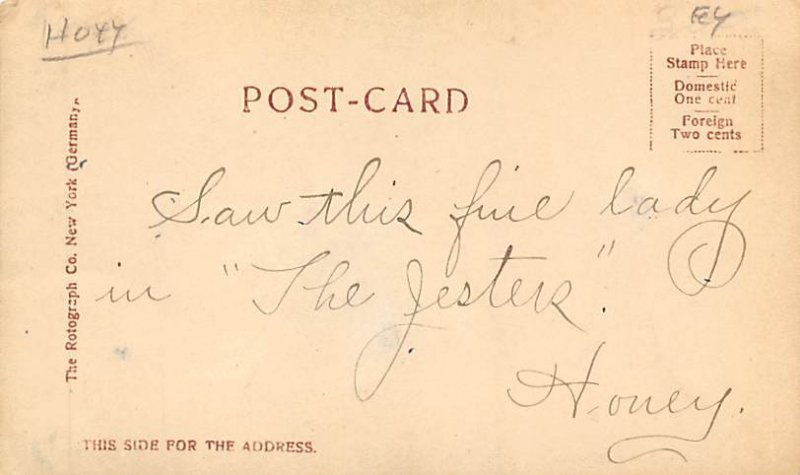 H044
EY
Place
Stamp Here
Domestic
One cent
Foreign
Two cents
POST-CARD
The Rotograph Co. New York (Germany.)
Saw this fine lady
in "The Jesters".
Honey.
THIS SIDE FOR THE ADDRESS.